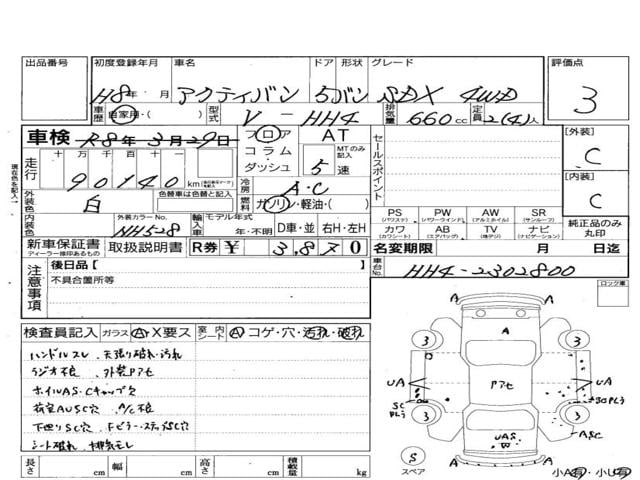 出品番号 初度登録年月 車名 ドア 形状 グレード 評価点
H8年 月 アクティバン 5バン SDX 4WD 3
車歴 自家用・( ) 型式 V-HH4 排気量 660cc 定員 2(4)人
車検 R8年3月29日 フロア コラム ダッシュ AT MTのみ記入 5速 セールスポイント [外装] C
走行 十万 万 千 百 十 90140 km 冷房 A・C [内装] C
外装色 白 色替車は色替と記入 燃料 ガソリン・軽油・( )
内装色 外装カラーNo. NH528 輸入車 モデル年式 年・不明 D車・並 右H・左H
PS (パワステ) PW (パワーウインド) AW (アルミホイル) SR (サンルーフ) 純正品のみ丸印
カワ (カワシート) AB (エアバッグ) TV (地デジ) ナビ (ナビゲーション)
新車保証書 ディーラー捺印あるもの 取扱説明書 R券 ¥ 3,870 名変期限 月 日迄
注意事項 後日品【 】 車台No. HH4-2302800
不具合箇所等 ロック車
検査員記入 ガラス A・X要ス 室内 シート A コゲ・穴・汚れ・破れ
ハンドルスレ 天張り破れ・汚れ
ラジオ不良 外装Pアセ
ホイルAS・Cキャップ欠
荷室AUSC穴 A/C不良
下廻りSC穴 Fピラー・ステップSC穴
シート破れ 排気モレ
A A A
3 3
A
UA Pアセ UA
SC
3 3
UAS A SC
S スペア
A A
小A有・小U有
長さ cm 幅 cm 高さ cm 積載量 kg
現在色を記入→